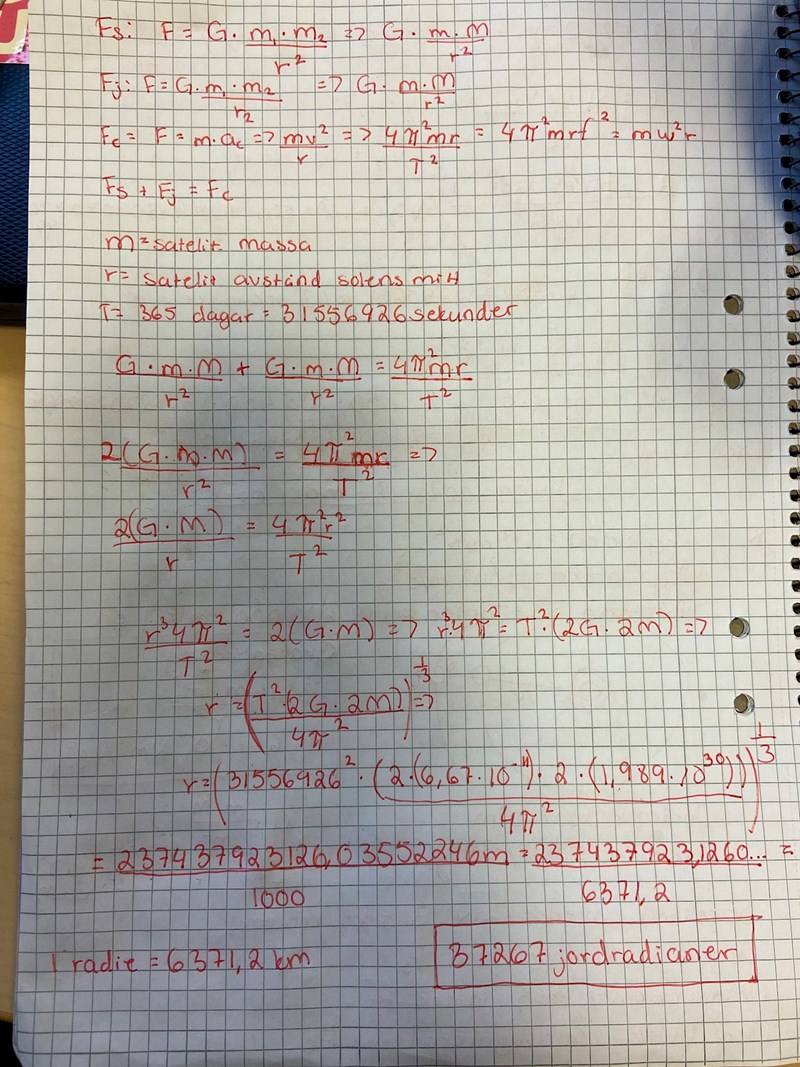 Fs: F = G · m₁ · m₂ / r² => G · m · M / r²
Fj: F = G · m₁ · m₂ / r₂ => G · m · M / r²
Fc = F = m · ac => mv² / r => 4π²mr / T² = 4π²mrf² = mω²r
Fs + Fj = Fc
m = satelit massa
r = satelit avstånd solens mitt
T = 365 dagar = 31556926 sekunder
G · m · M / r² + G · m · M / r² = 4π²mr / T²
2(G · m · M) / r² = 4π²mr / T² =>
2(G · M) / r = 4π²r² / T²
r³4π² / T² = 2(G · M) => r³ · 4π² = T² · (2G · 2M) =>
r = (T² · (2G · 2M) / 4π²)^(1/3) =>
r = (31556926² · (2 · (6,67 · 10⁻¹¹) · 2 · (1,989 · 10³⁰)) / 4π²)^(1/3)
= 237437923126,03552246m / 1000 = 237437923,1260... / 6371,2 =
1 radie = 6371,2 km
37267 jordradianer